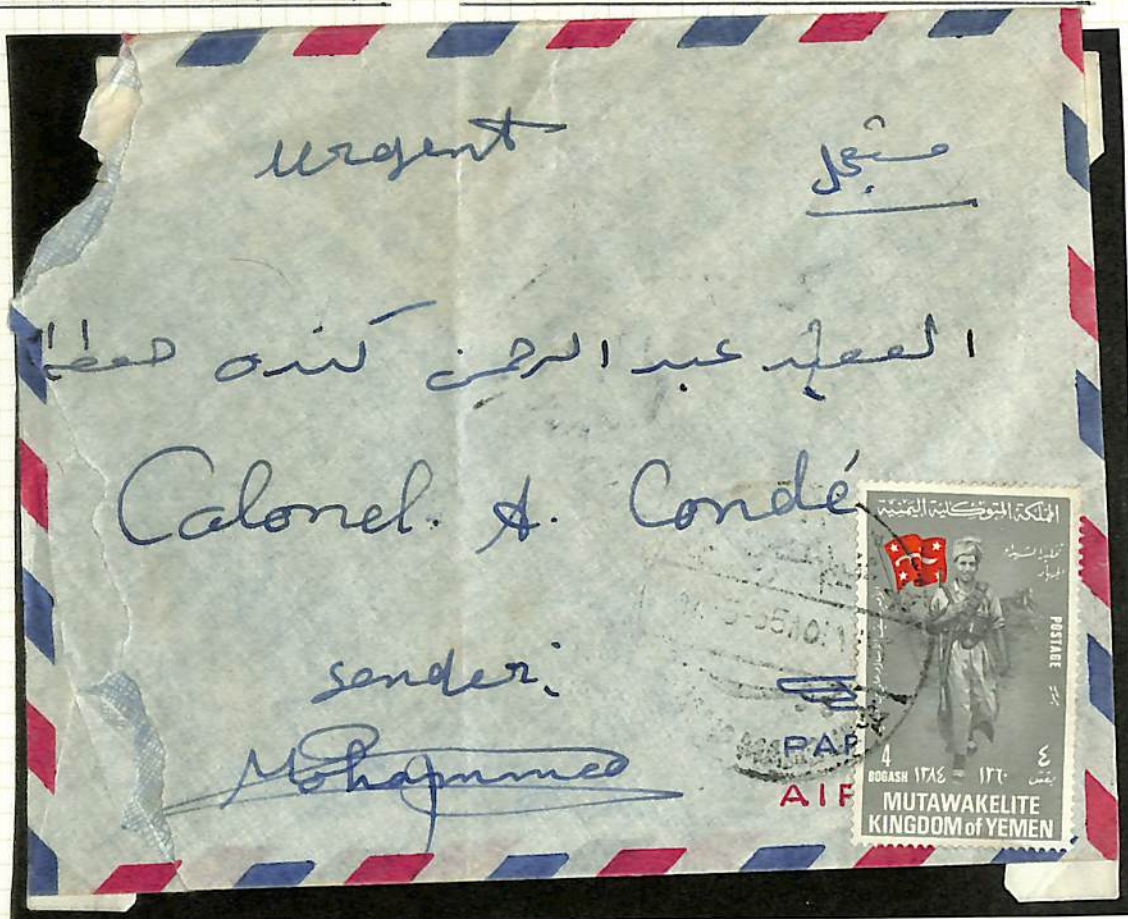 urgent
مستعجل
العقيد عبد الرحمن كنده حفظه الله
Colonel. A. Condé
sender:
Mohammed
PAR
AIR
المملكة المتوكلية اليمنية
POSTAGE
بريد
4 ٤
BOGASH ١٣٨٤ ١٣٦٠ بقش
MUTAWAKELITE
KINGDOM of YEMEN